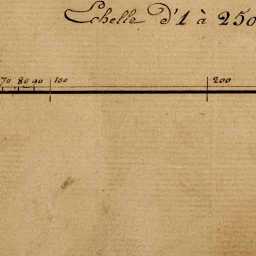 Echelle d'1 à 250
70 80 90 100 200